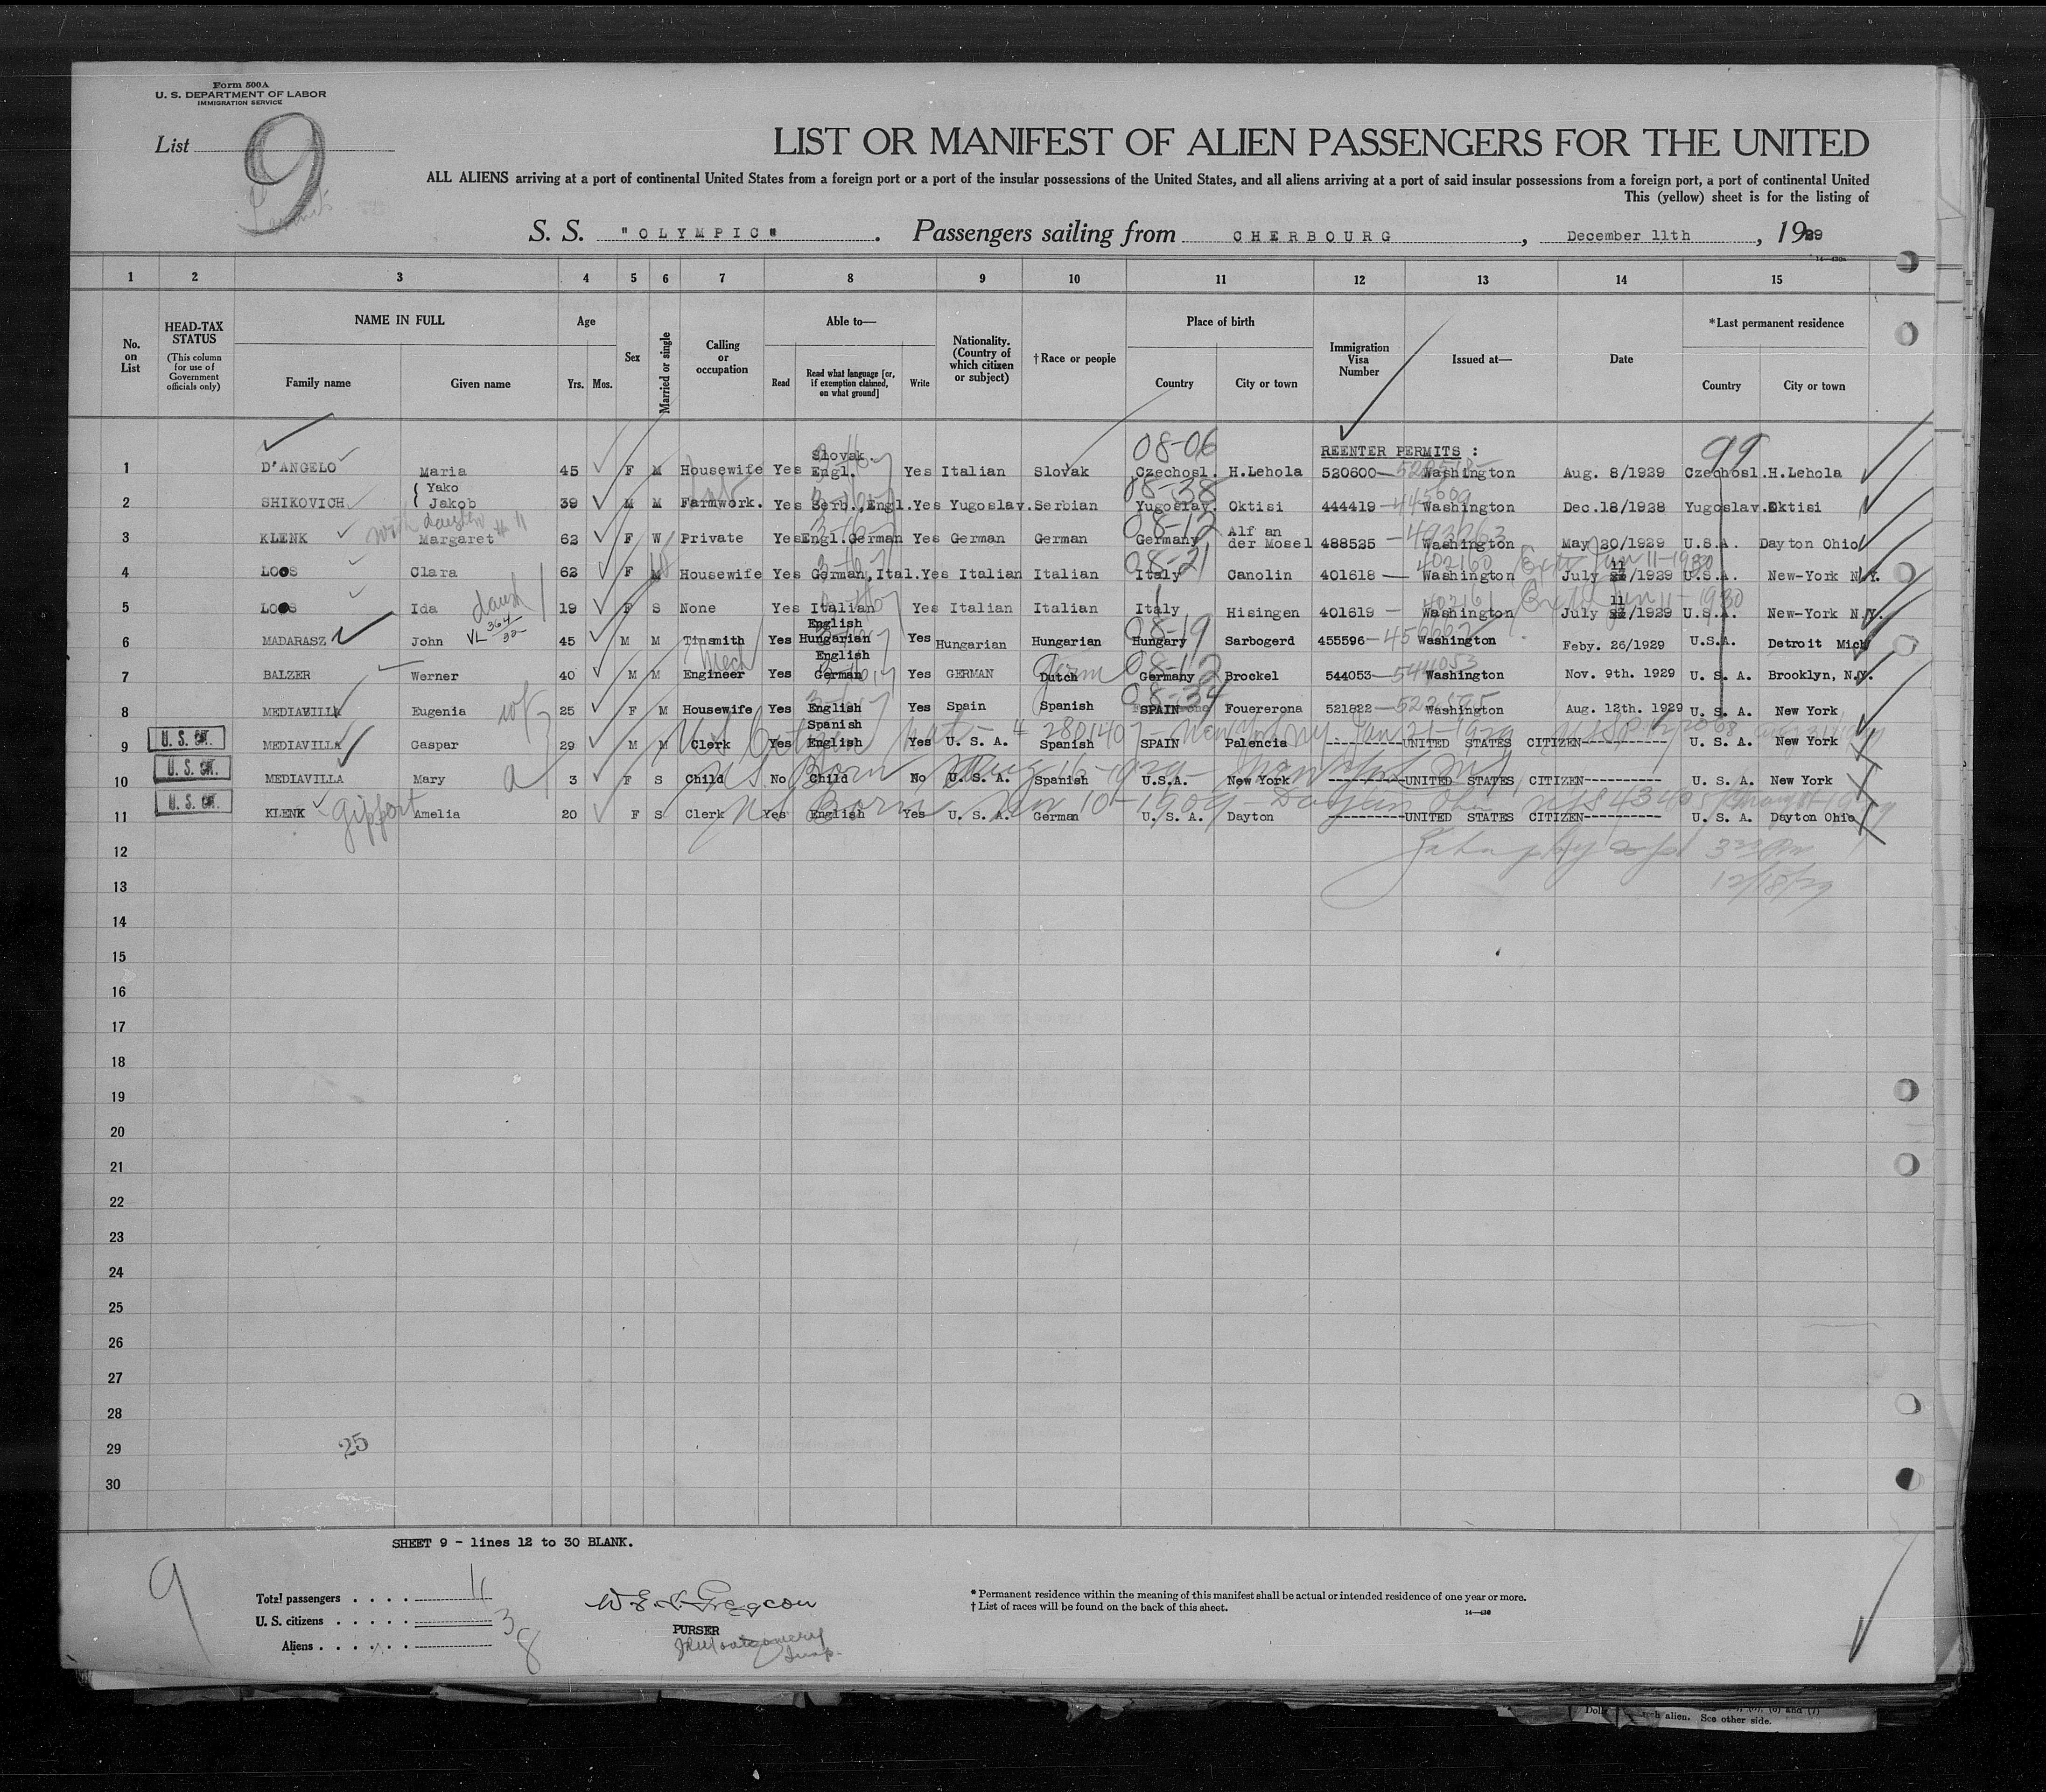 Form 500A
U. S. DEPARTMENT OF LABOR
IMMIGRATION SERVICE
List 9
LIST OR MANIFEST OF ALIEN PASSENGERS FOR THE UNITED
ALL ALIENS arriving at a port of continental United States from a foreign port or a port of the insular possessions of the United States, and all aliens arriving at a port of said insular possessions from a foreign port, a port of continental United
This (yellow) sheet is for the listing of
S. S. "OLYMPIC" . Passengers sailing from CHERBOURG , December 11th , 1929
1 2 3 4 5 6 7 8 9 10 11 12 13 14 15
No. on List
HEAD-TAX STATUS (This column for use of Government officials only)
NAME IN FULL
Family name Given name
Age
Yrs. Mos.
Sex
Married or single
Calling or occupation
Able to—
Read Read what language [or, if exemption claimed, on what ground] Write
Nationality. (Country of which citizen or subject)
† Race or people
Place of birth
Country City or town
Immigration Visa Number
Issued at—
Date
*Last permanent residence
Country City or town
08-06 REENTER PERMITS : 99
1 D'ANGELO Maria 45 F M Housewife Yes Slovak. Engl. Yes Italian Slovak Czechosl. H.Lehola 520600 Washington Aug. 8/1929 Czechosl. H.Lehola
08-38
2 SHIKOVICH { Yako Jakob 39 M M Farmwork. Yes Serb.,Engl. Yes Yugoslav. Serbian Yugoslav. Oktisi 444419 Washington Dec.18/1928 Yugoslav. Oktisi
with daughter # 11 08-12
3 KLENK Margaret 62 F W Private Yes Engl.German Yes German German Germany Alf an der Mosel 488525 Washington May 20/1929 U.S.A. Dayton Ohio
08-21 402160 Ext Jun 11-1930
4 LOOS Clara 62 F M Housewife Yes German,Ital. Yes Italian Italian Italy Canolin 401618 Washington July 11/1929 U.S.A. New-York N.Y.
daugh 402161 Jun 11-1930
5 LOOS Ida 19 F S None Yes Italian Yes Italian Italian Italy Hisingen 401619 Washington July 11/1929 U.S.A. New-York N.Y.
VL 364/22 08-19
6 MADARASZ John 45 M M Tinsmith Yes English Hungarian Yes Hungarian Hungarian Hungary Sarbogerd 455596 Washington Feby. 26/1929 U.S.A. Detroit Mich
Mech Germ 08-12 544053
7 BALZER Werner 40 M M Engineer Yes English German Yes GERMAN Dutch Germany Brockel 544053 Washington Nov. 9th. 1929 U. S. A. Brooklyn, N.Y.
wf 08-34
8 MEDIAVILLA Eugenia 25 F M Housewife Yes English Spanish Yes Spain Spanish SPAIN Fouererona 521822 Washington Aug. 12th. 1929 U. S. A. New York
U. S. CIT. # 2801407 - New York NY Jan 21-1929
9 MEDIAVILLA Gaspar 29 M M Clerk Yes English Yes U. S. A. Spanish SPAIN Palencia ----------UNITED STATES CITIZEN---------- U. S. A. New York
U. S. CIT. US Born
10 MEDIAVILLA Mary 3 F S Child No Child No U. S. A. Spanish U.S.A. New York ----------UNITED STATES CITIZEN---------- U. S. A. New York
U. S. CIT. US Born Jan 10-1909 - Dayton Ohio
11 KLENK Amelia 20 F S Clerk Yes English Yes U. S. A. German U. S. A. Dayton ----------UNITED STATES CITIZEN---------- U. S. A. Dayton Ohio
12
12/18/29
13
14
15
16
17
18
19
20
21
22
23
24
25
26
27
28
25
29
30
SHEET 9 - lines 12 to 30 BLANK.
9
Total passengers . . . . 11
U. S. citizens . . . . . 3
Aliens . . . . . . 8
PURSER
JR Montgomery
Insp.
* Permanent residence within the meaning of this manifest shall be actual or intended residence of one year or more.
† List of races will be found on the back of this sheet.
14—430
alien. See other side.